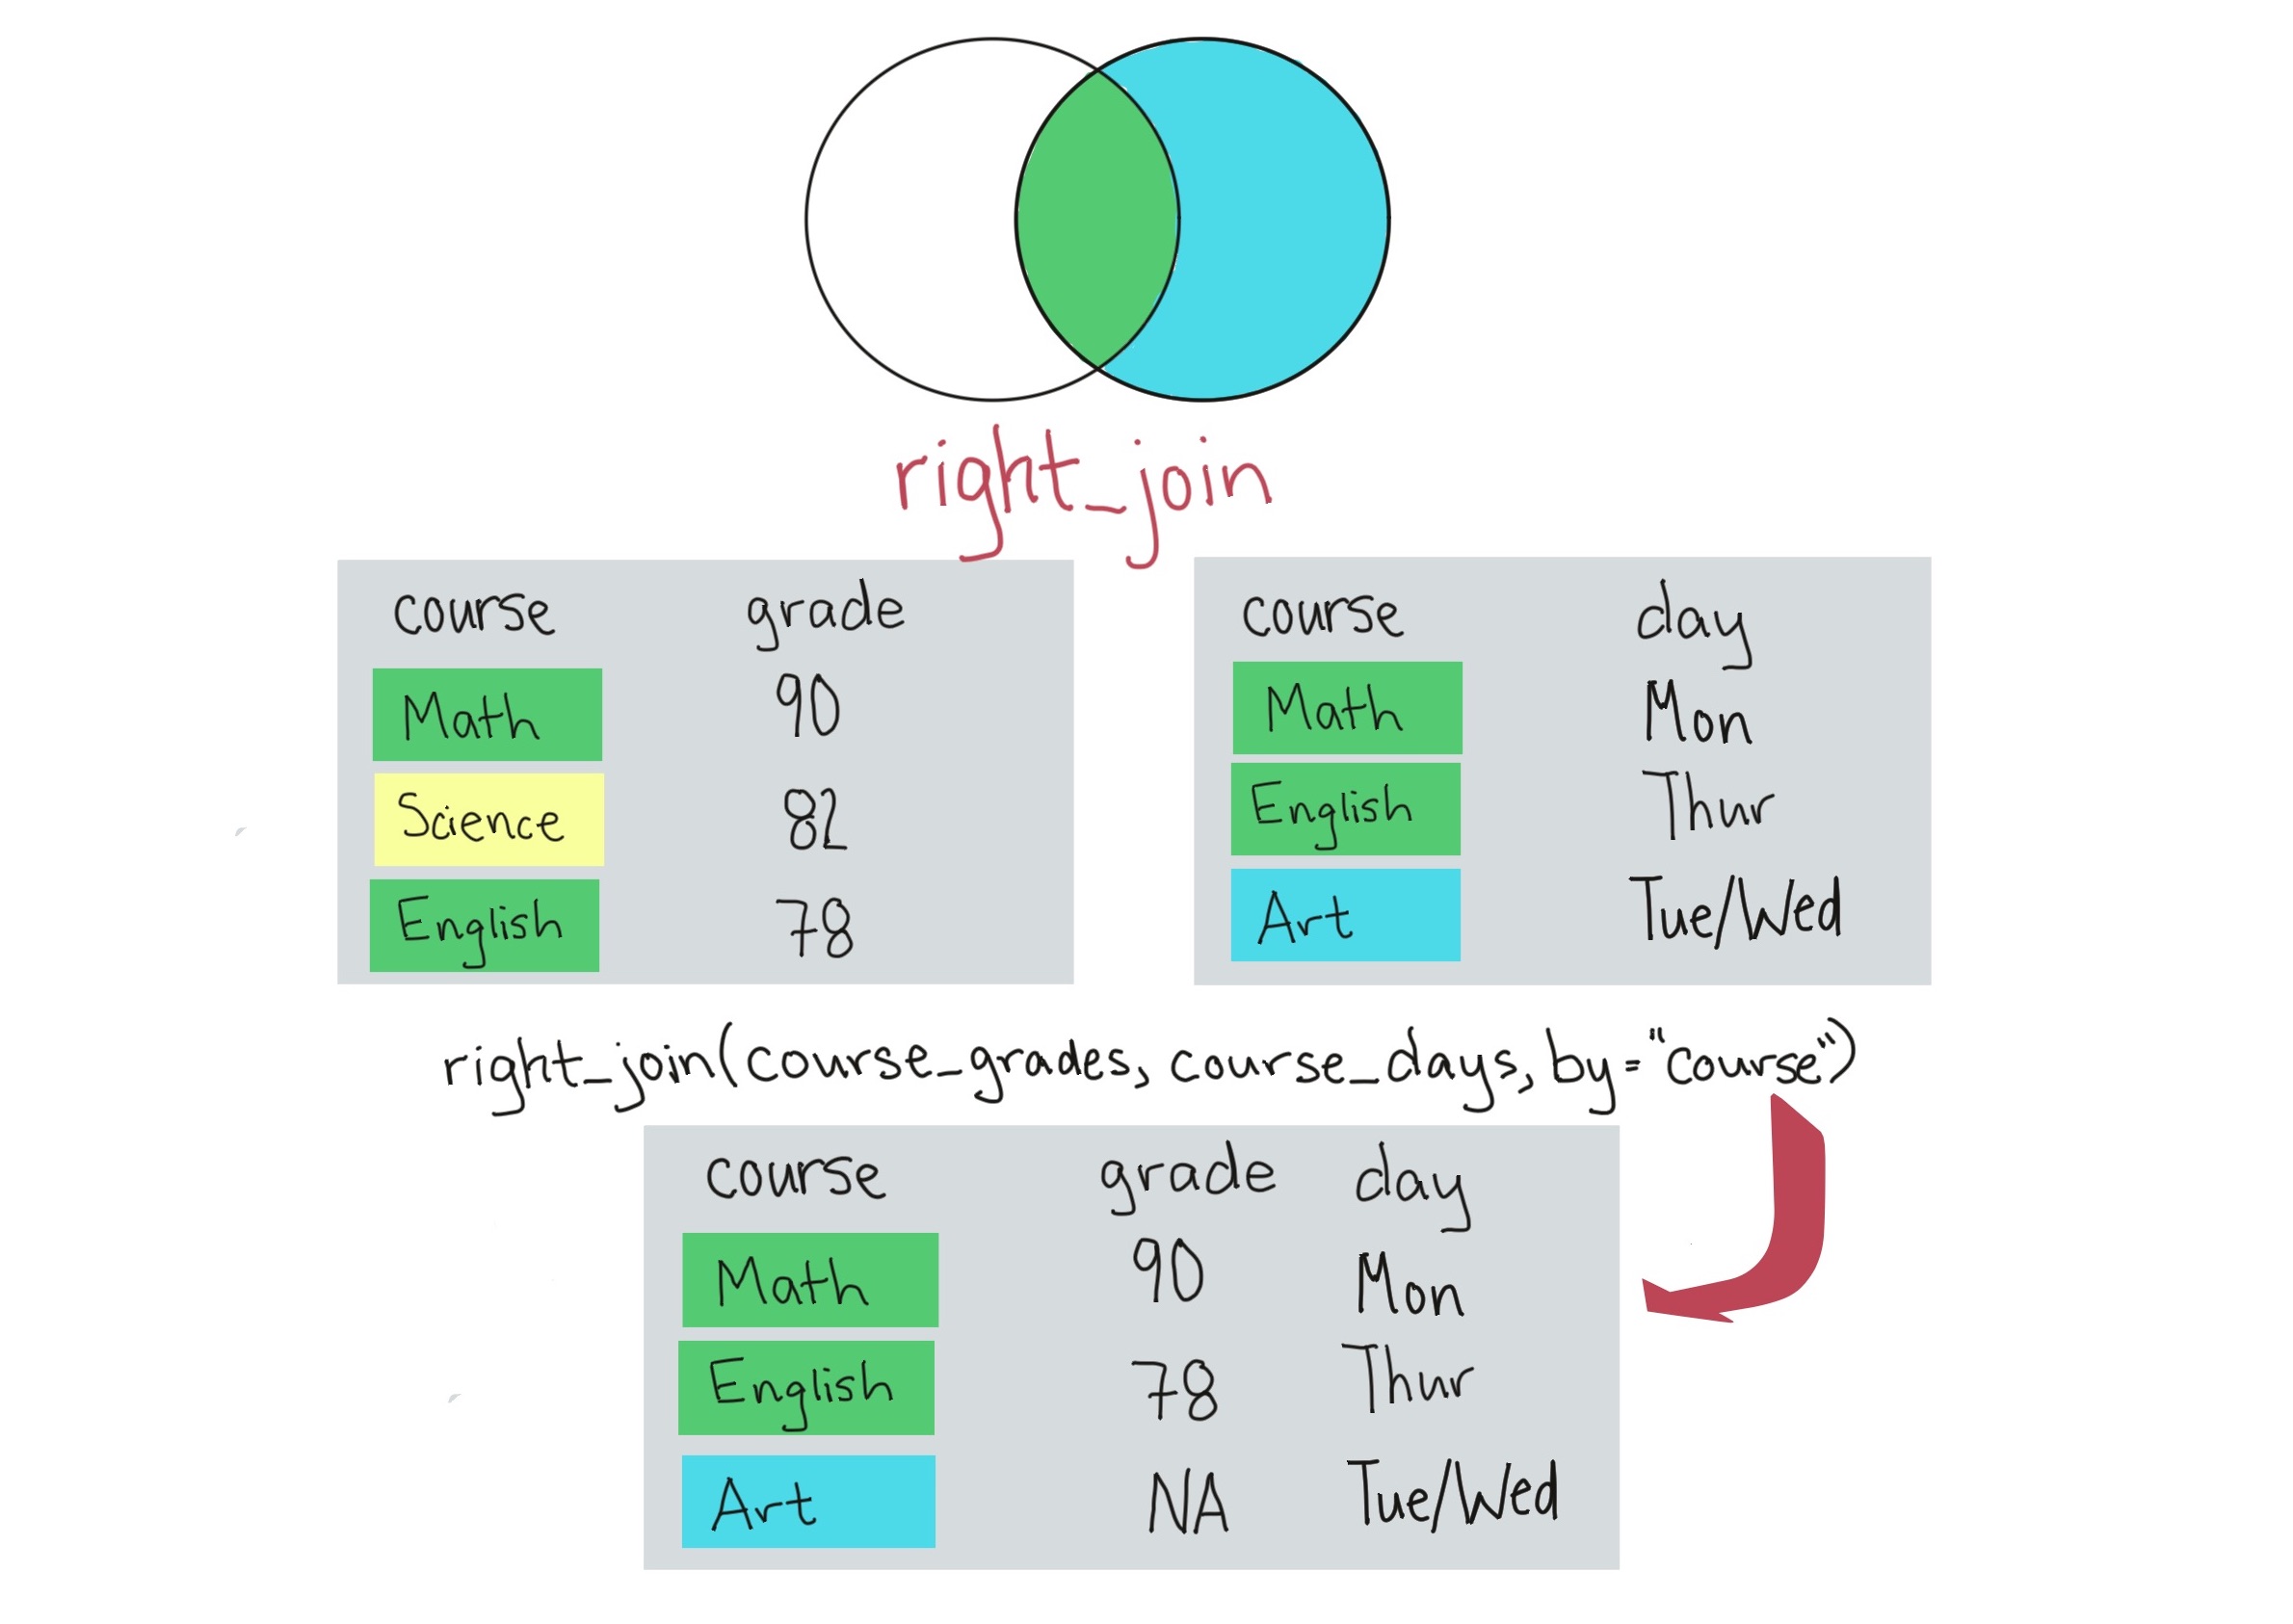 right_join
course grade
Math 90
Science 82
English 78
course day
Math Mon
English Thur
Art Tue/Wed
right_join(course_grades, course_days, by="course")
course grade day
Math 90 Mon
English 78 Thur
Art NA Tue/Wed